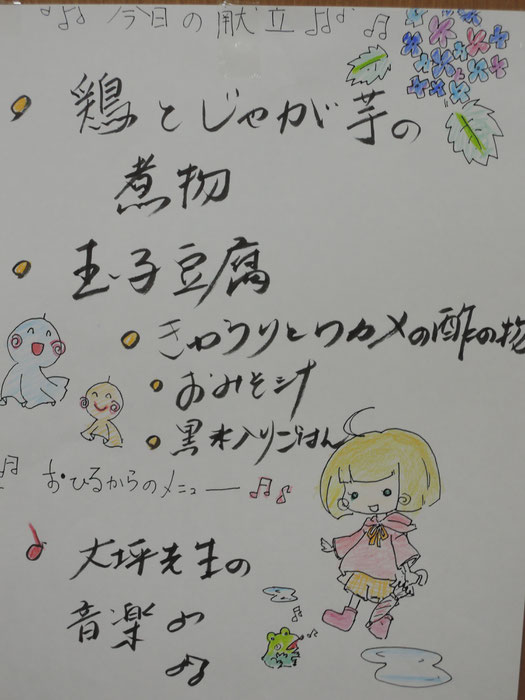 今日の献立
鶏とじゃがいも芋の
煮物
玉子豆腐
きゅうりとワカメの酢の物
おみそ汁
黒米入りごはん
おひるからのメニュー
大坪先生の
音楽